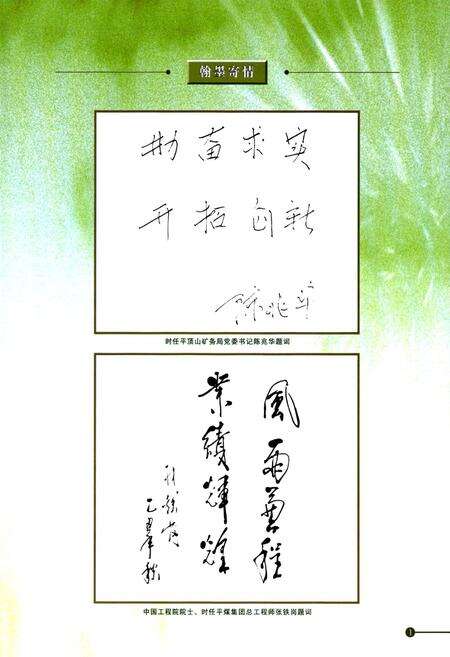 翰墨寄情
勤奋求实
开拓创新
陈兆华
时任平顶山矿务局党委书记陈兆华题词
風雨兼程
業績輝煌
张铁岗
乙丑年秋
中国工程院院士、时任平煤集团总工程师张铁岗题词
1